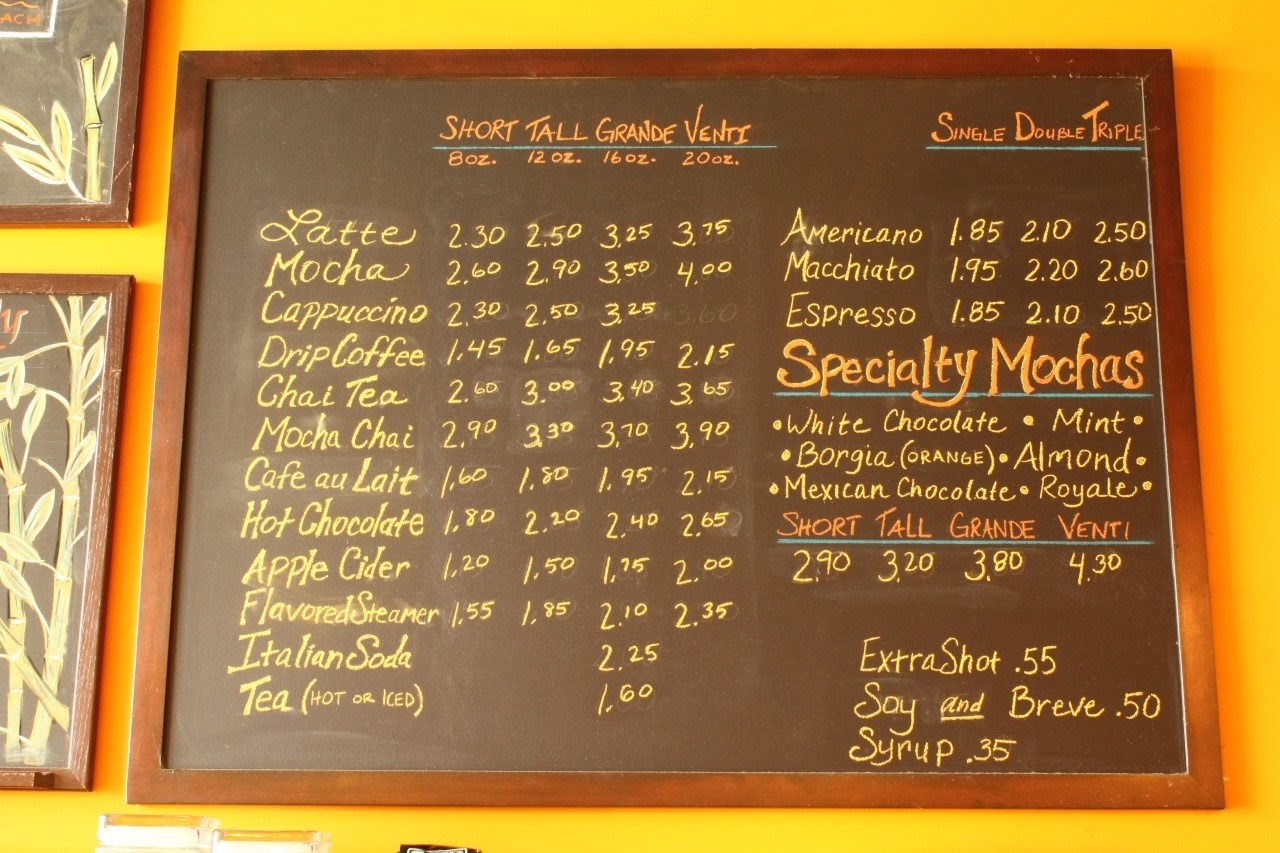 ACH
SHORT TALL GRANDE VENTI
8oz. 12oz. 16oz. 20oz.
Latte 2.30 2.50 3.25 3.75
Mocha 2.60 2.90 3.50 4.00
Cappuccino 2.30 2.50 3.25 3.60
Drip Coffee 1.45 1.65 1.95 2.15
Chai Tea 2.60 3.00 3.40 3.65
Mocha Chai 2.90 3.30 3.70 3.90
Cafe au Lait 1.60 1.80 1.95 2.15
Hot Chocolate 1.80 2.20 2.40 2.65
Apple Cider 1.20 1.50 1.75 2.00
Flavored Steamer 1.55 1.85 2.10 2.35
Italian Soda 2.25
Tea (HOT OR ICED) 1.60
SINGLE DOUBLE TRIPLE
Americano 1.85 2.10 2.50
Macchiato 1.95 2.20 2.60
Espresso 1.85 2.10 2.50
Specialty Mochas
• White Chocolate • Mint •
• Borgia (ORANGE) • Almond •
• Mexican Chocolate • Royale •
SHORT TALL GRANDE VENTI
2.90 3.20 3.80 4.30
Extra Shot .55
Soy and Breve .50
Syrup .35